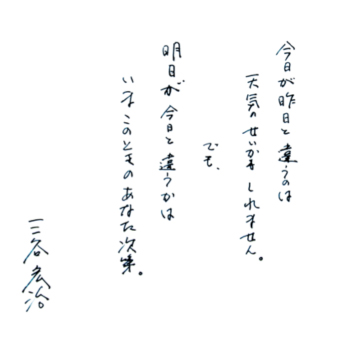 今日が昨日と違うのは
天気のせいかもしれません。
でも、
明日が今日と違うかは
いまこのときのあなた次第。
三谷宏治